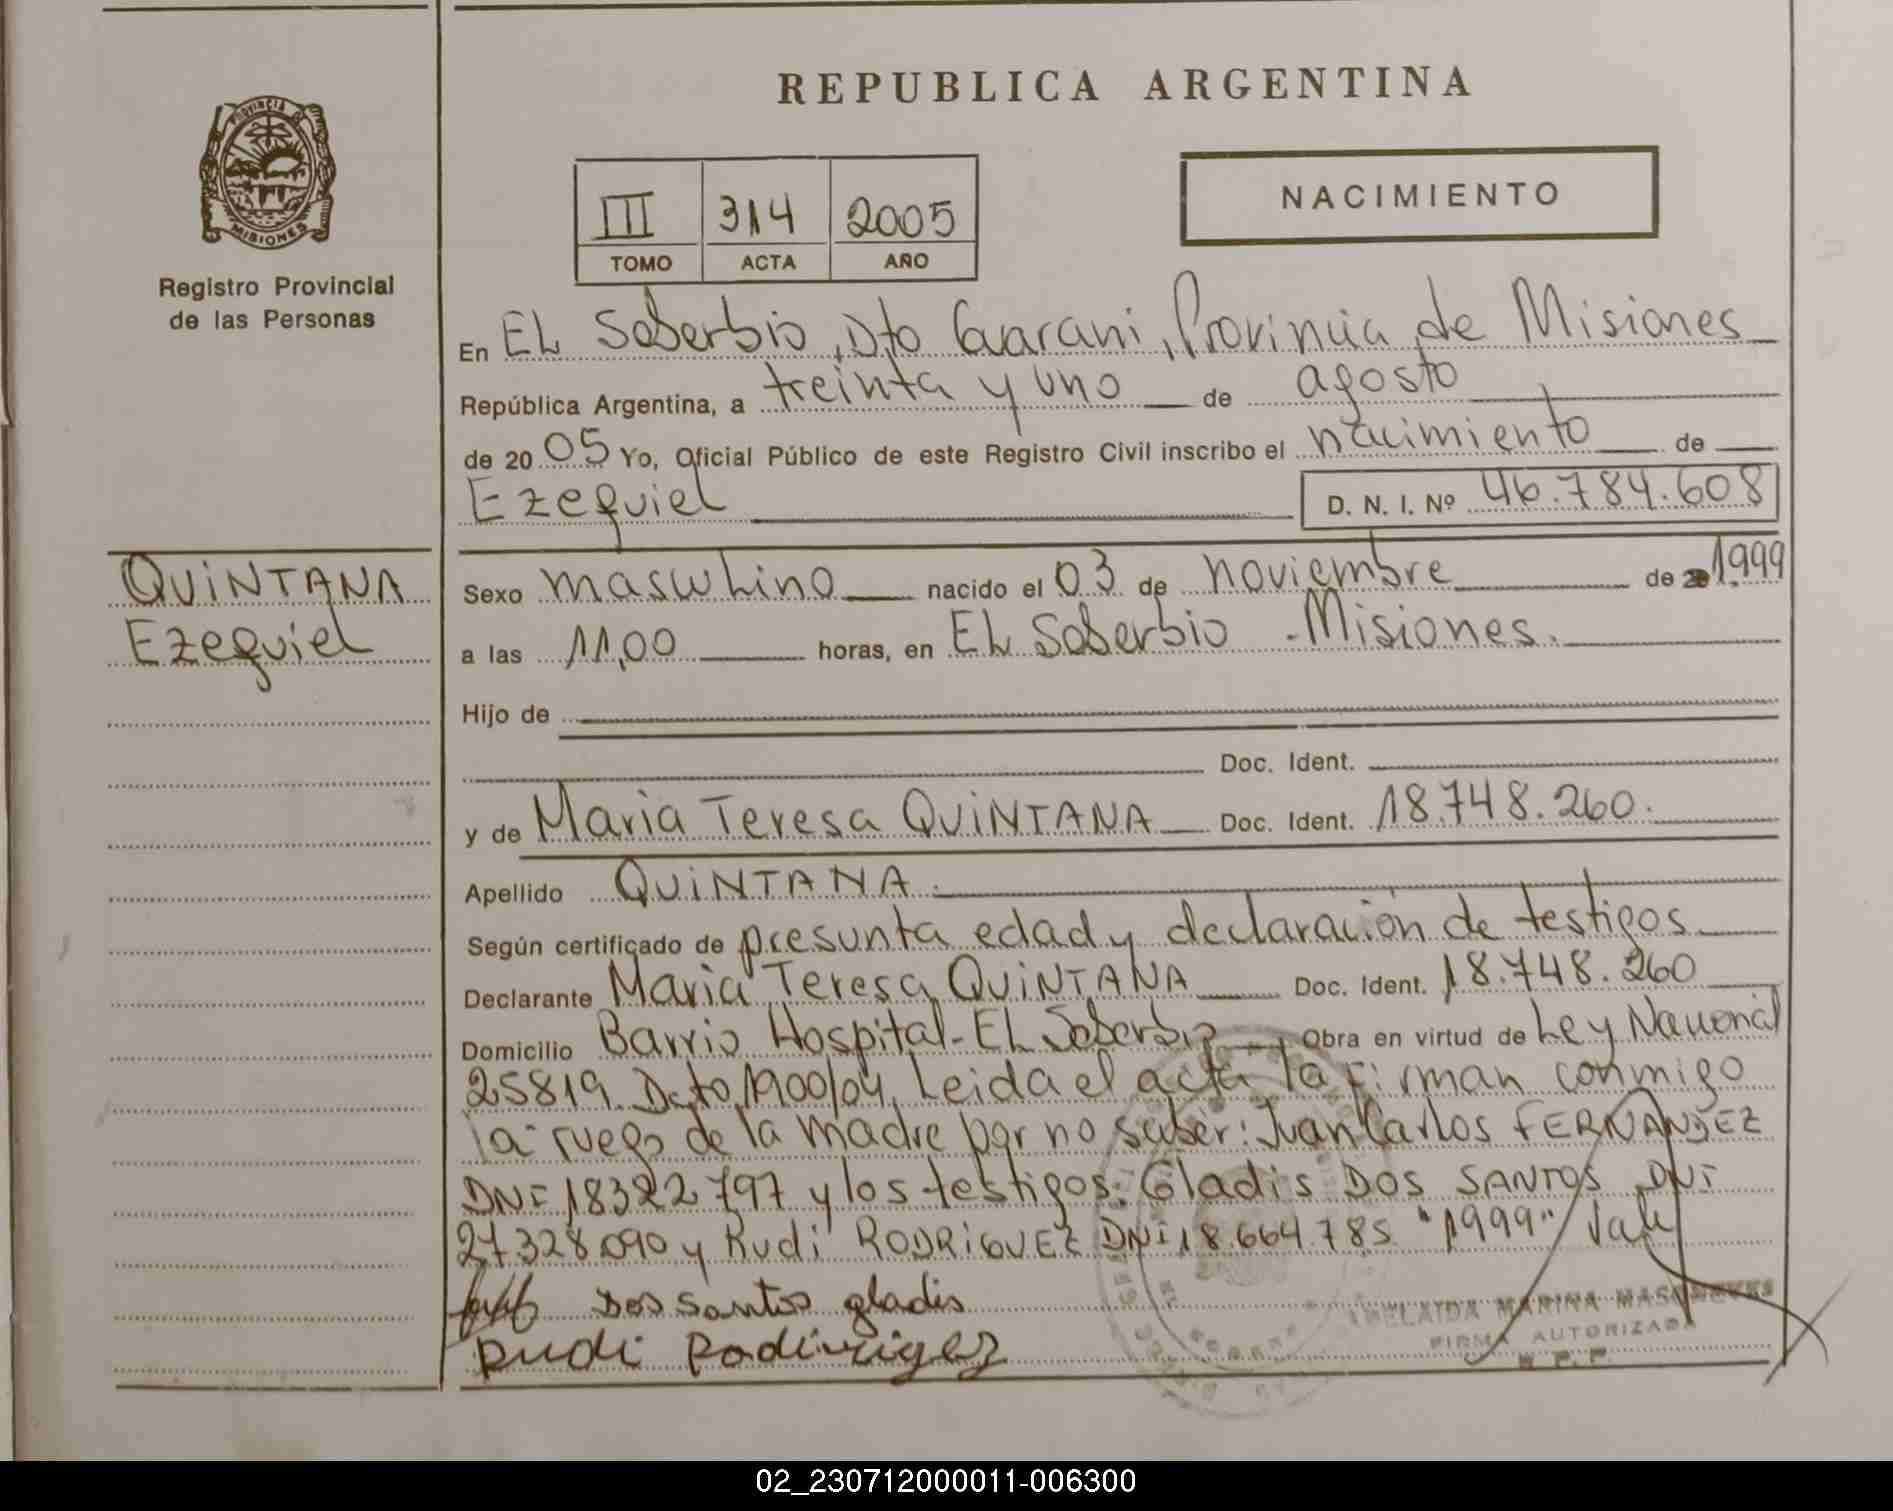 REPUBLICA ARGENTINA
PROVINCIA DE
MISIONES
Registro Provincial
de las Personas
III 314 2005
TOMO ACTA AÑO
NACIMIENTO
En EL Soberbio, Dto Guarani, Provincia de Misiones
República Argentina, a treinta y uno de agosto
de 2005 Yo, Oficial Público de este Registro Civil inscribo el nacimiento de
Ezequiel D. N. I. Nº 46.784.608
QUINTANA
Ezequiel
Sexo masculino nacido el 03 de noviembre de 20 1999
a las 11,00 horas, en EL Soberbio - Misiones.
Hijo de
Doc. Ident.
y de Maria Teresa QUINTANA Doc. Ident. 18.748.260.
Apellido QUINTANA.
Según certificado de presunta edad y declaración de testigos
Declarante Maria Teresa QUINTANA Doc. Ident. 18.748.260
Domicilio Barrio Hospital - EL Soberbio Obra en virtud de Ley Nacional
25819. Dcto 1900/04, Leida el acta la firman conmigo
a ruego de la madre por no saber: Juan Carlos FERNANDEZ
DNI 18322797 y los testigos: Gladis DOS SANTOS DNI
27328.090 y Rudi RODRIGUEZ DNI 18.664.785 "1999" Vale
Dos Santos gladis
MARINA
FIRMA AUTORIZADA
Rudi Rodiriguez
R. P. P.
02_230712000011-006300